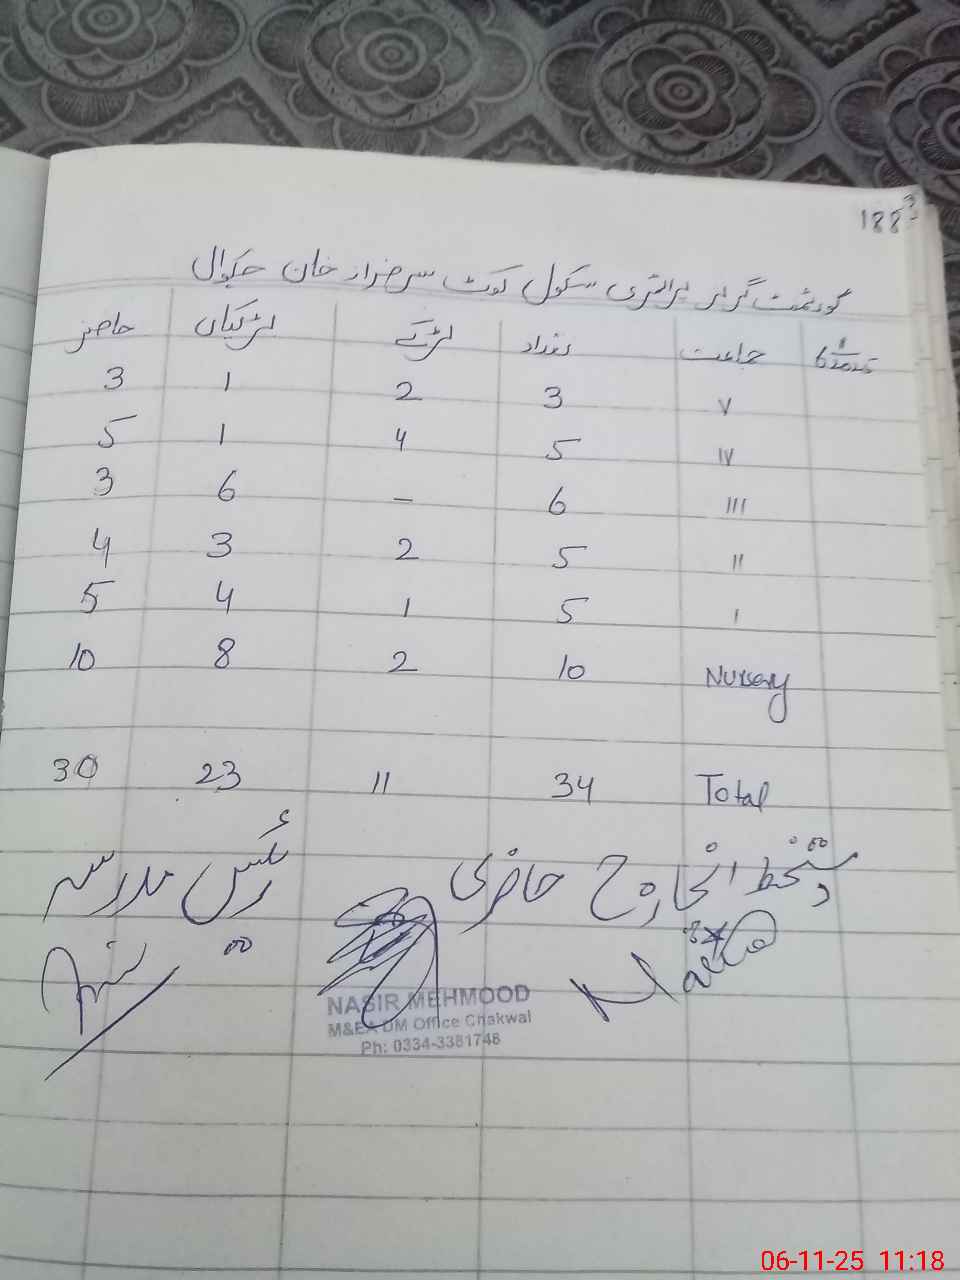 188
گورنمنٹ گرلز پرائمری سکول کوٹ سرفراز خان چکوال
جماعت تعداد لڑکے لڑکیاں حاضر
V 3 2 1 3
IV 5 4 1 5
III 6 – 6 3
II 5 2 3 4
I 5 1 4 5
Nursery 10 2 8 10
Total 34 11 23 30
دستخط انچارج حاضری رئیس مدرسہ
NASIR MEHMOOD
M&EA DM Office Chakwal
Ph: 0334-3381748
06-11-25 11:18